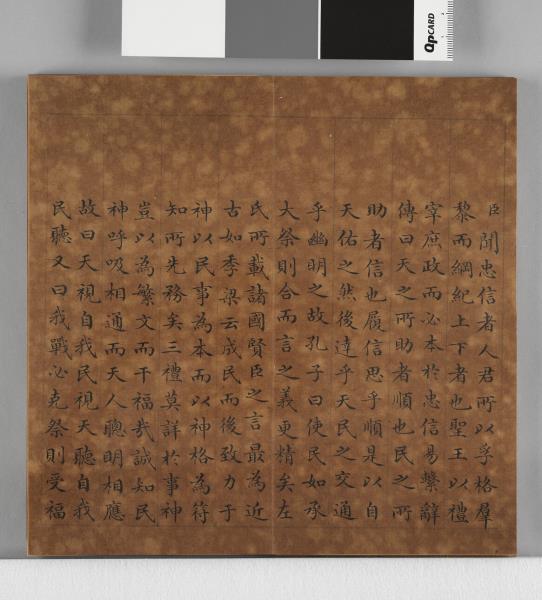 臣聞忠信者人君所以孚格羣
黎而綱紀上下者也聖王以禮
宰庶政而必本於忠信易繫辭
傳曰天之所助者順也民之所
助者信也履信思乎順是以自
天佑之然後達乎天民之交通
乎幽明之故孔子曰使民如承
大祭則合而言之義更精矣左
氏所載諸國賢臣之言最為近
古如季梁云成民而後致力于
神以民事為本而以神格為符
知所先務矣三禮莫詳於事神
豈以為繁文而干福哉誠知民
神呼吸相通而天人聰明相應
故曰天視自我民視天聽自我
民聽又曰我戰必克祭則受福
QPCARD